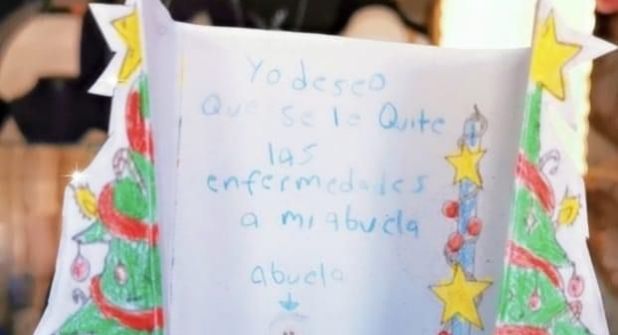 Yo deseo
Que se le Quite
las
enfermedades
a mi abuela
abuela